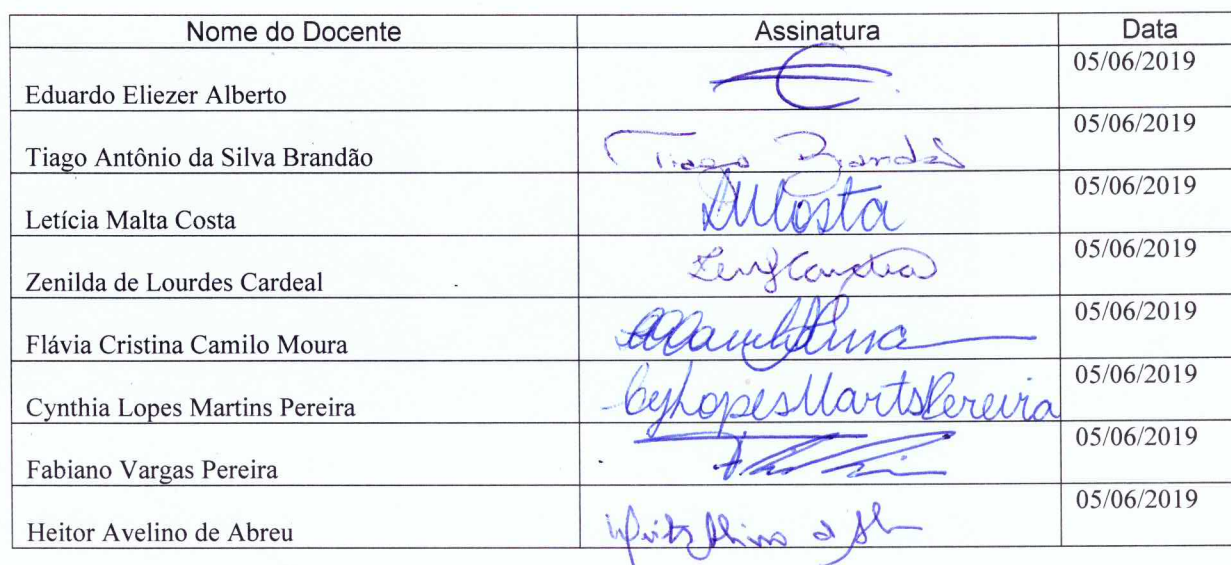 Nome do Docente Assinatura Data
Eduardo Eliezer Alberto 05/06/2019
Tiago Antônio da Silva Brandão Tiago Brandão 05/06/2019
Letícia Malta Costa LMCosta 05/06/2019
Zenilda de Lourdes Cardeal 05/06/2019
Flávia Cristina Camilo Moura 05/06/2019
Cynthia Lopes Martins Pereira CyLopesMartsPereira 05/06/2019
Fabiano Vargas Pereira 05/06/2019
Heitor Avelino de Abreu 05/06/2019